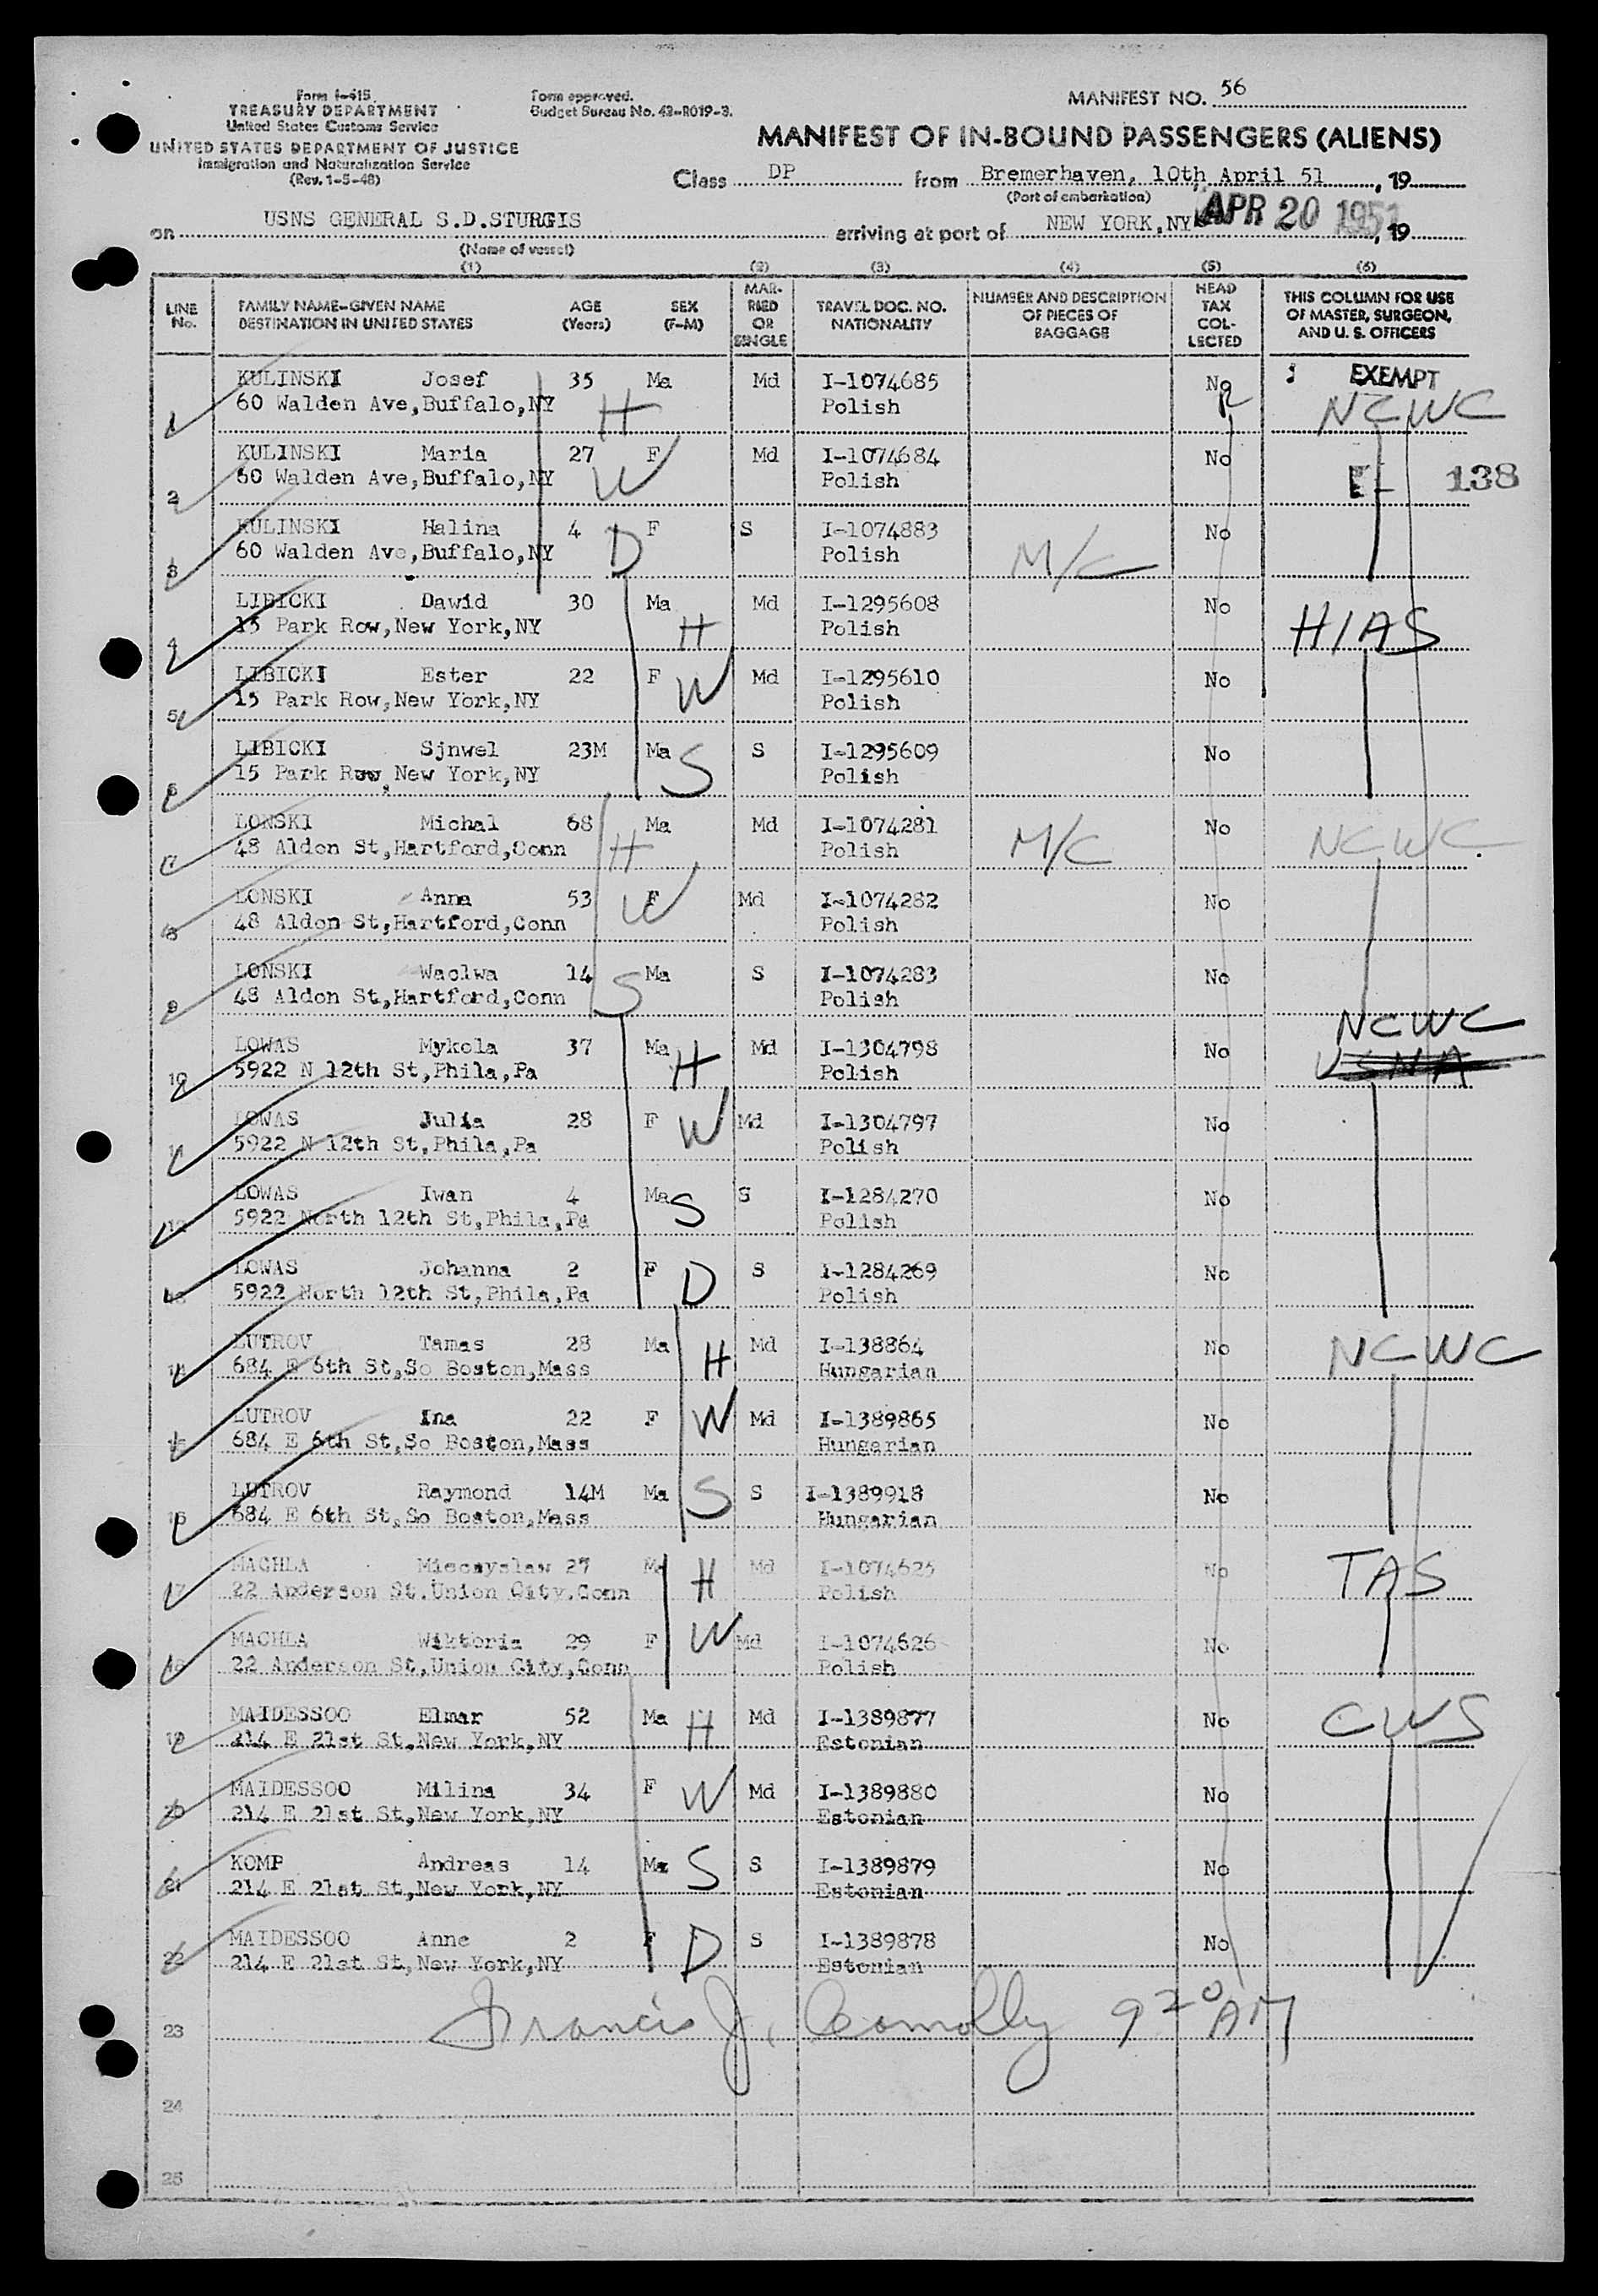 Form I-415
TREASURY DEPARTMENT
United States Customs Service
UNITED STATES DEPARTMENT OF JUSTICE
Immigration and Naturalization Service
(Rev. 1-5-48)
Form approved.
Budget Bureau No. 43-R019-3.
MANIFEST NO. 56
MANIFEST OF IN-BOUND PASSENGERS (ALIENS)
Class DP from Bremerhaven, 10th April 51, 19
(Port of embarkation)
on USNS GENERAL S.D.STURGIS arriving at port of NEW YORK,NY APR 20 1951, 19
(Name of vessel)
(1) (2) (3) (4) (5) (6)
LINE No. FAMILY NAME-GIVEN NAME DESTINATION IN UNITED STATES AGE (Years) SEX (F-M) MARRIED OR SINGLE TRAVEL DOC. NO. NATIONALITY NUMBER AND DESCRIPTION OF PIECES OF BAGGAGE HEAD TAX COLLECTED THIS COLUMN FOR USE OF MASTER, SURGEON, AND U. S. OFFICERS
1 KULINSKI Josef 35 Ma Md I-1074685 No EXEMPT
60 Walden Ave,Buffalo,NY H Polish NCWC
2 KULINSKI Maria 27 F Md I-1074684 No
60 Walden Ave,Buffalo,NY W Polish 138
3 KULINSKI Halina 4 F S I-1074883 No
60 Walden Ave,Buffalo,NY D Polish M/C
4 LIBICKI Dawid 30 Ma Md I-1295608 No
15 Park Row,New York,NY H Polish HIAS
5 LIBICKI Ester 22 F Md I-1295610 No
15 Park Row,New York,NY W Polish
6 LIBICKI Sjnwel 23M Ma S I-1295609 No
15 Park Row, New York,NY S Polish
7 LONSKI Michal 68 Ma Md I-1074281 No
48 Aldon St,Hartford,Conn H Polish M/C NCWC
8 LONSKI Anna 53 F Md I-1074282 No
48 Aldon St,Hartford,Conn W Polish
9 LONSKI Waclwa 14 Ma S I-1074283 No
48 Aldon St,Hartford,Conn S Polish
10 LOWAS Mykola 37 Ma Md I-1304798 No NCWC
5922 N 12th St,Phila,Pa H Polish USNA
11 LOWAS Julia 28 F Md I-1304797 No
5922 N 12th St,Phila,Pa W Polish
12 LOWAS Iwan 4 Ma S I-1284270 No
5922 North 12th St,Phila,Pa S Polish
13 LOWAS Johanna 2 F S I-1284269 No
5922 North 12th St,Phila,Pa D Polish
14 LUTROV Tamas 28 Ma Md I-138864 No
684 E 6th St,So Boston,Mass H Hungarian NCWC
15 LUTROV Ina 22 F Md I-1389865 No
684 E 6th St,So Boston,Mass W Hungarian
16 LUTROV Raymond 14M Ma S I-1389918 No
684 E 6th St,So Boston,Mass S Hungarian
17 MACHLA Miecayslaw 27 Ma Md I-1074625 No
22 Anderson St.Union City.Conn H Polish TAS
18 MACHLA Wiktoria 29 F Md I-1074626 No
22 Anderson St,Union City,Conn W Polish
19 MAIDESSOO Elmar 52 Ma Md I-1389877 No
214 E 21st St,New York,NY H Estonian CWS
20 MAIDESSOO Milina 34 F Md I-1389880 No
214 E 21st St,New York,NY W Estonian
21 KOMP Andreas 14 Ma S I-1389879 No
214 E 21st St,New York,NY S Estonian
22 MAIDESSOO Anne 2 F S I-1389878 No
214 E 21st St,New York,NY D Estonian
23 Francis J. Connolly 9 20 AM
24
25